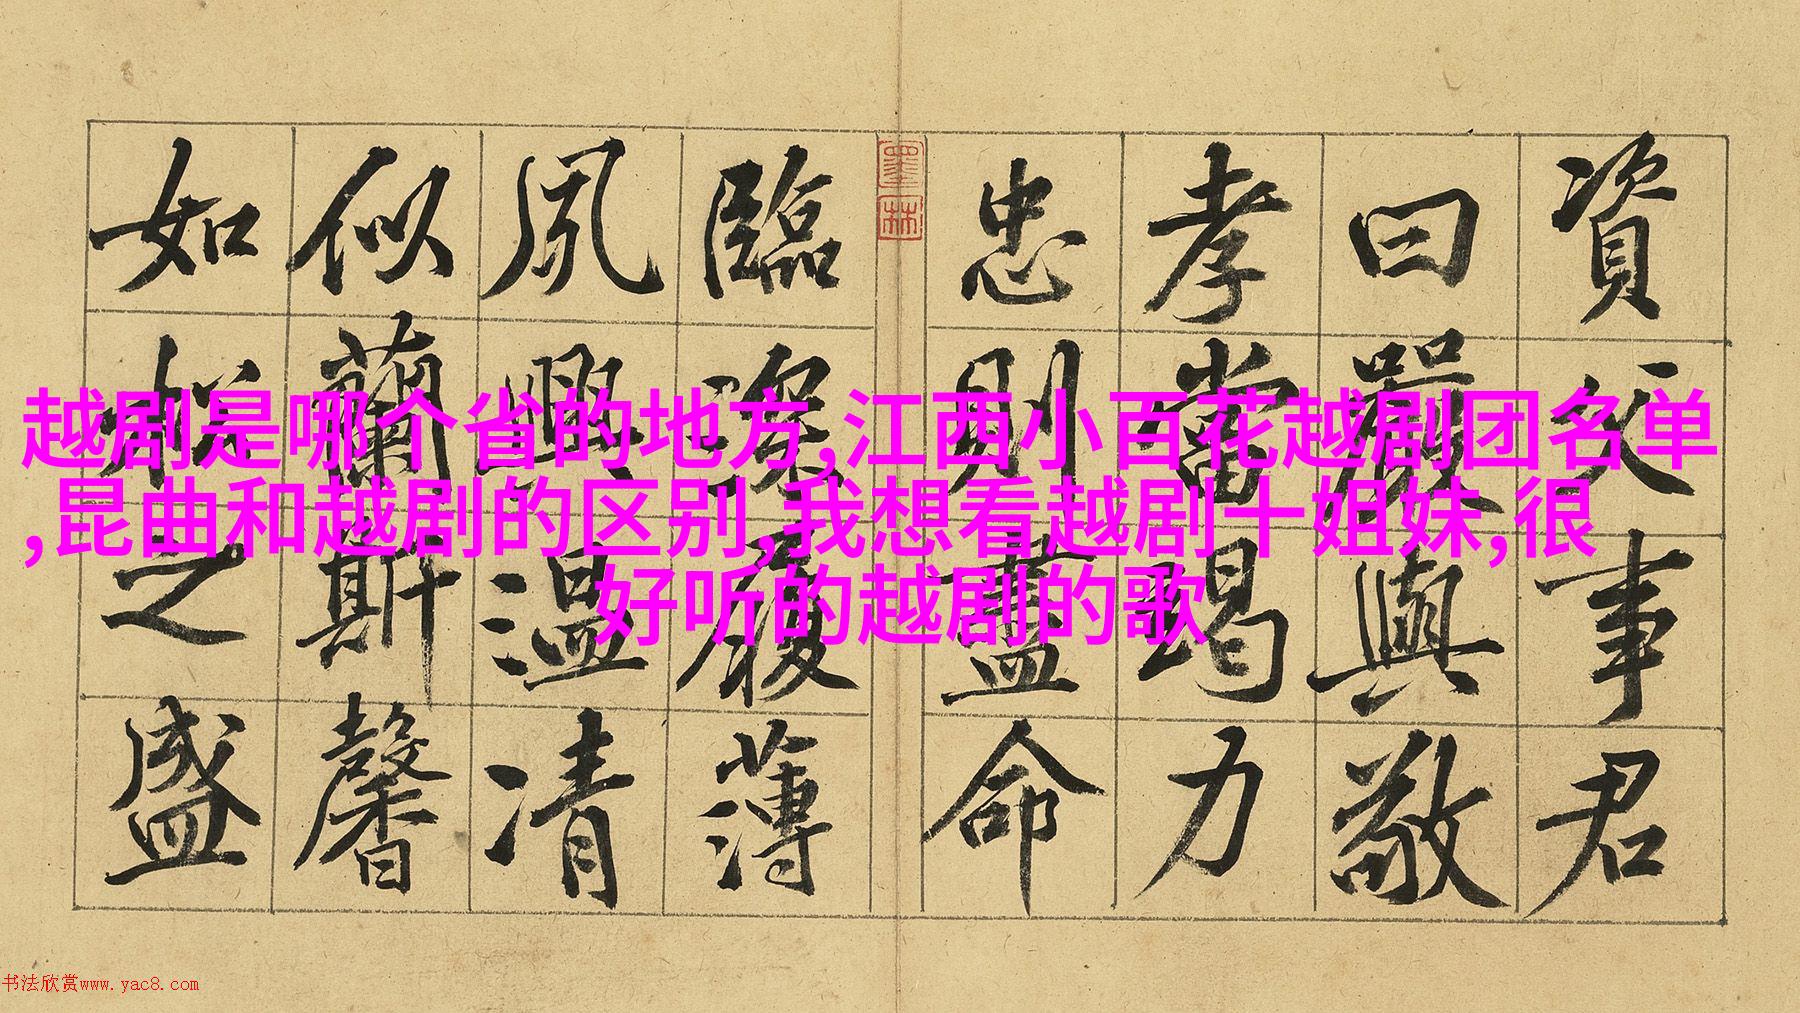 越剧是哪个省的地方,江西小百花越剧团名单
,昆曲和越剧的区别,我想看越剧十姐妹,很
好听的越剧的歌
資父事君
曰嚴與敬
孝當竭力
忠則盡命
墨林
臨深履薄
夙興温凊
似蘭斯馨
如松之盛
书法欣赏www.yac8.com